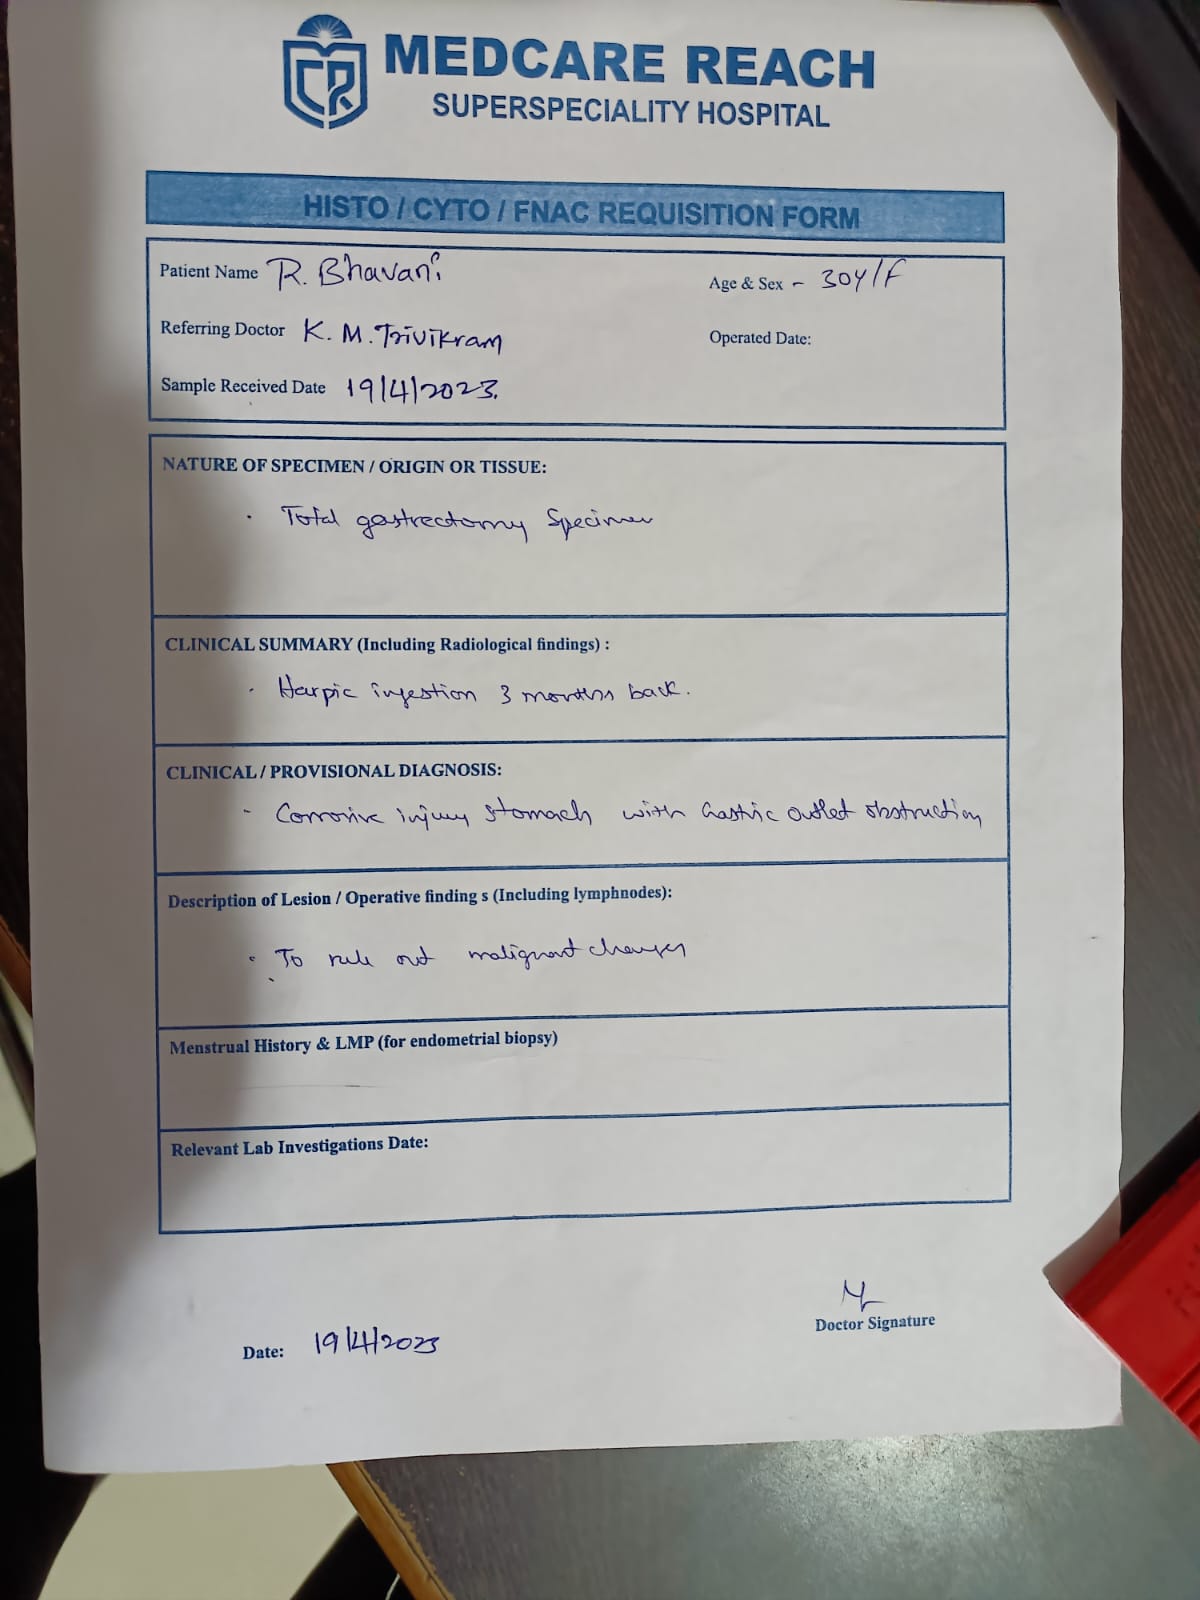 MEDCARE REACH
SUPERSPECIALITY HOSPITAL
HISTO / CYTO / FNAC REQUISITION FORM
Patient Name R. Bhavani
Age & Sex - 30Y/F
Referring Doctor K. M. Trivikram
Operated Date:
Sample Received Date 19/4/2023.
NATURE OF SPECIMEN / ORIGIN OR TISSUE:
· Total gastrectomy Specimen
CLINICAL SUMMARY (Including Radiological findings) :
· Harpic ingestion 3 months back.
CLINICAL / PROVISIONAL DIAGNOSIS:
- Corrosive injury stomach with Gastric outlet obstruction
Description of Lesion / Operative finding s (Including lymphnodes):
· To rule out malignant changes
Menstrual History & LMP (for endometrial biopsy)
Relevant Lab Investigations Date:
Doctor Signature
Date: 19/4/2023